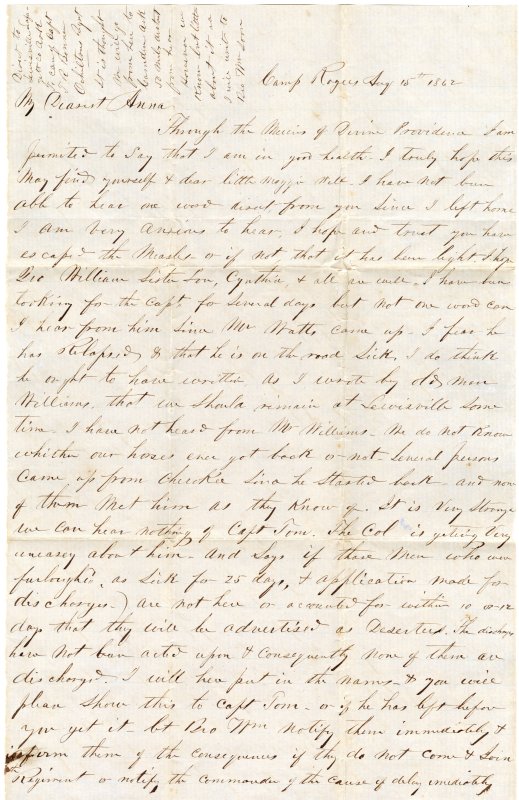 Camp Rogers Aug 15th 1862
My Dearest Anna
Through the Mercies of Divine Providence I am
permited to Say that I am in good health. I truly hope this
May find yourself & dear little Maggie well. I have not been
able to hear one word direct from you Since I left home
I am Very Anxious to hear, I hope and trust you have
escaped the Measles or if not, that it has been light. I hope
Bro William Sister Lou, Cynthia, & all are well. I have been
looking for the Capt for Several days but not one word can
I hear from him Since Mr Watts came up. I fear he
has relapsed & that he is on the road Sick, I do think
he ought to have written as I wrote by old man
Williams, that we Should remain at Lewisville Some
time. I have not heard from Mr Williams. We do not Know
whither our horses ever got back or not. Several persons
Came up from Cherokee Since he Started back and none
of them Met him as they Know of. It is Very Strange
we can hear nothing of Capt Tom. The Col is geting very
uneasey about him. And Says if those Men who were
furloughed, as Sick for 25 days, & application made for
discharges) are not here or accounted for within 10 or 12
days that they will be advertised as Deserters. The discharges
have Not been acted upon & Consequently None of them are
discharged. I will here put in the names & you will
please Show this to Capt Tom or if he has left before
you get it let Bro Wm notify them immediately &
inform them of the Consequences if they do not Come & Join
Regiment or notify the Commander of the cause of delay imediately
Direct to
care of Capt
It is thought
we will go
from here to
Camden Ark
from here
about it
I will write to
Bro Wm Soon